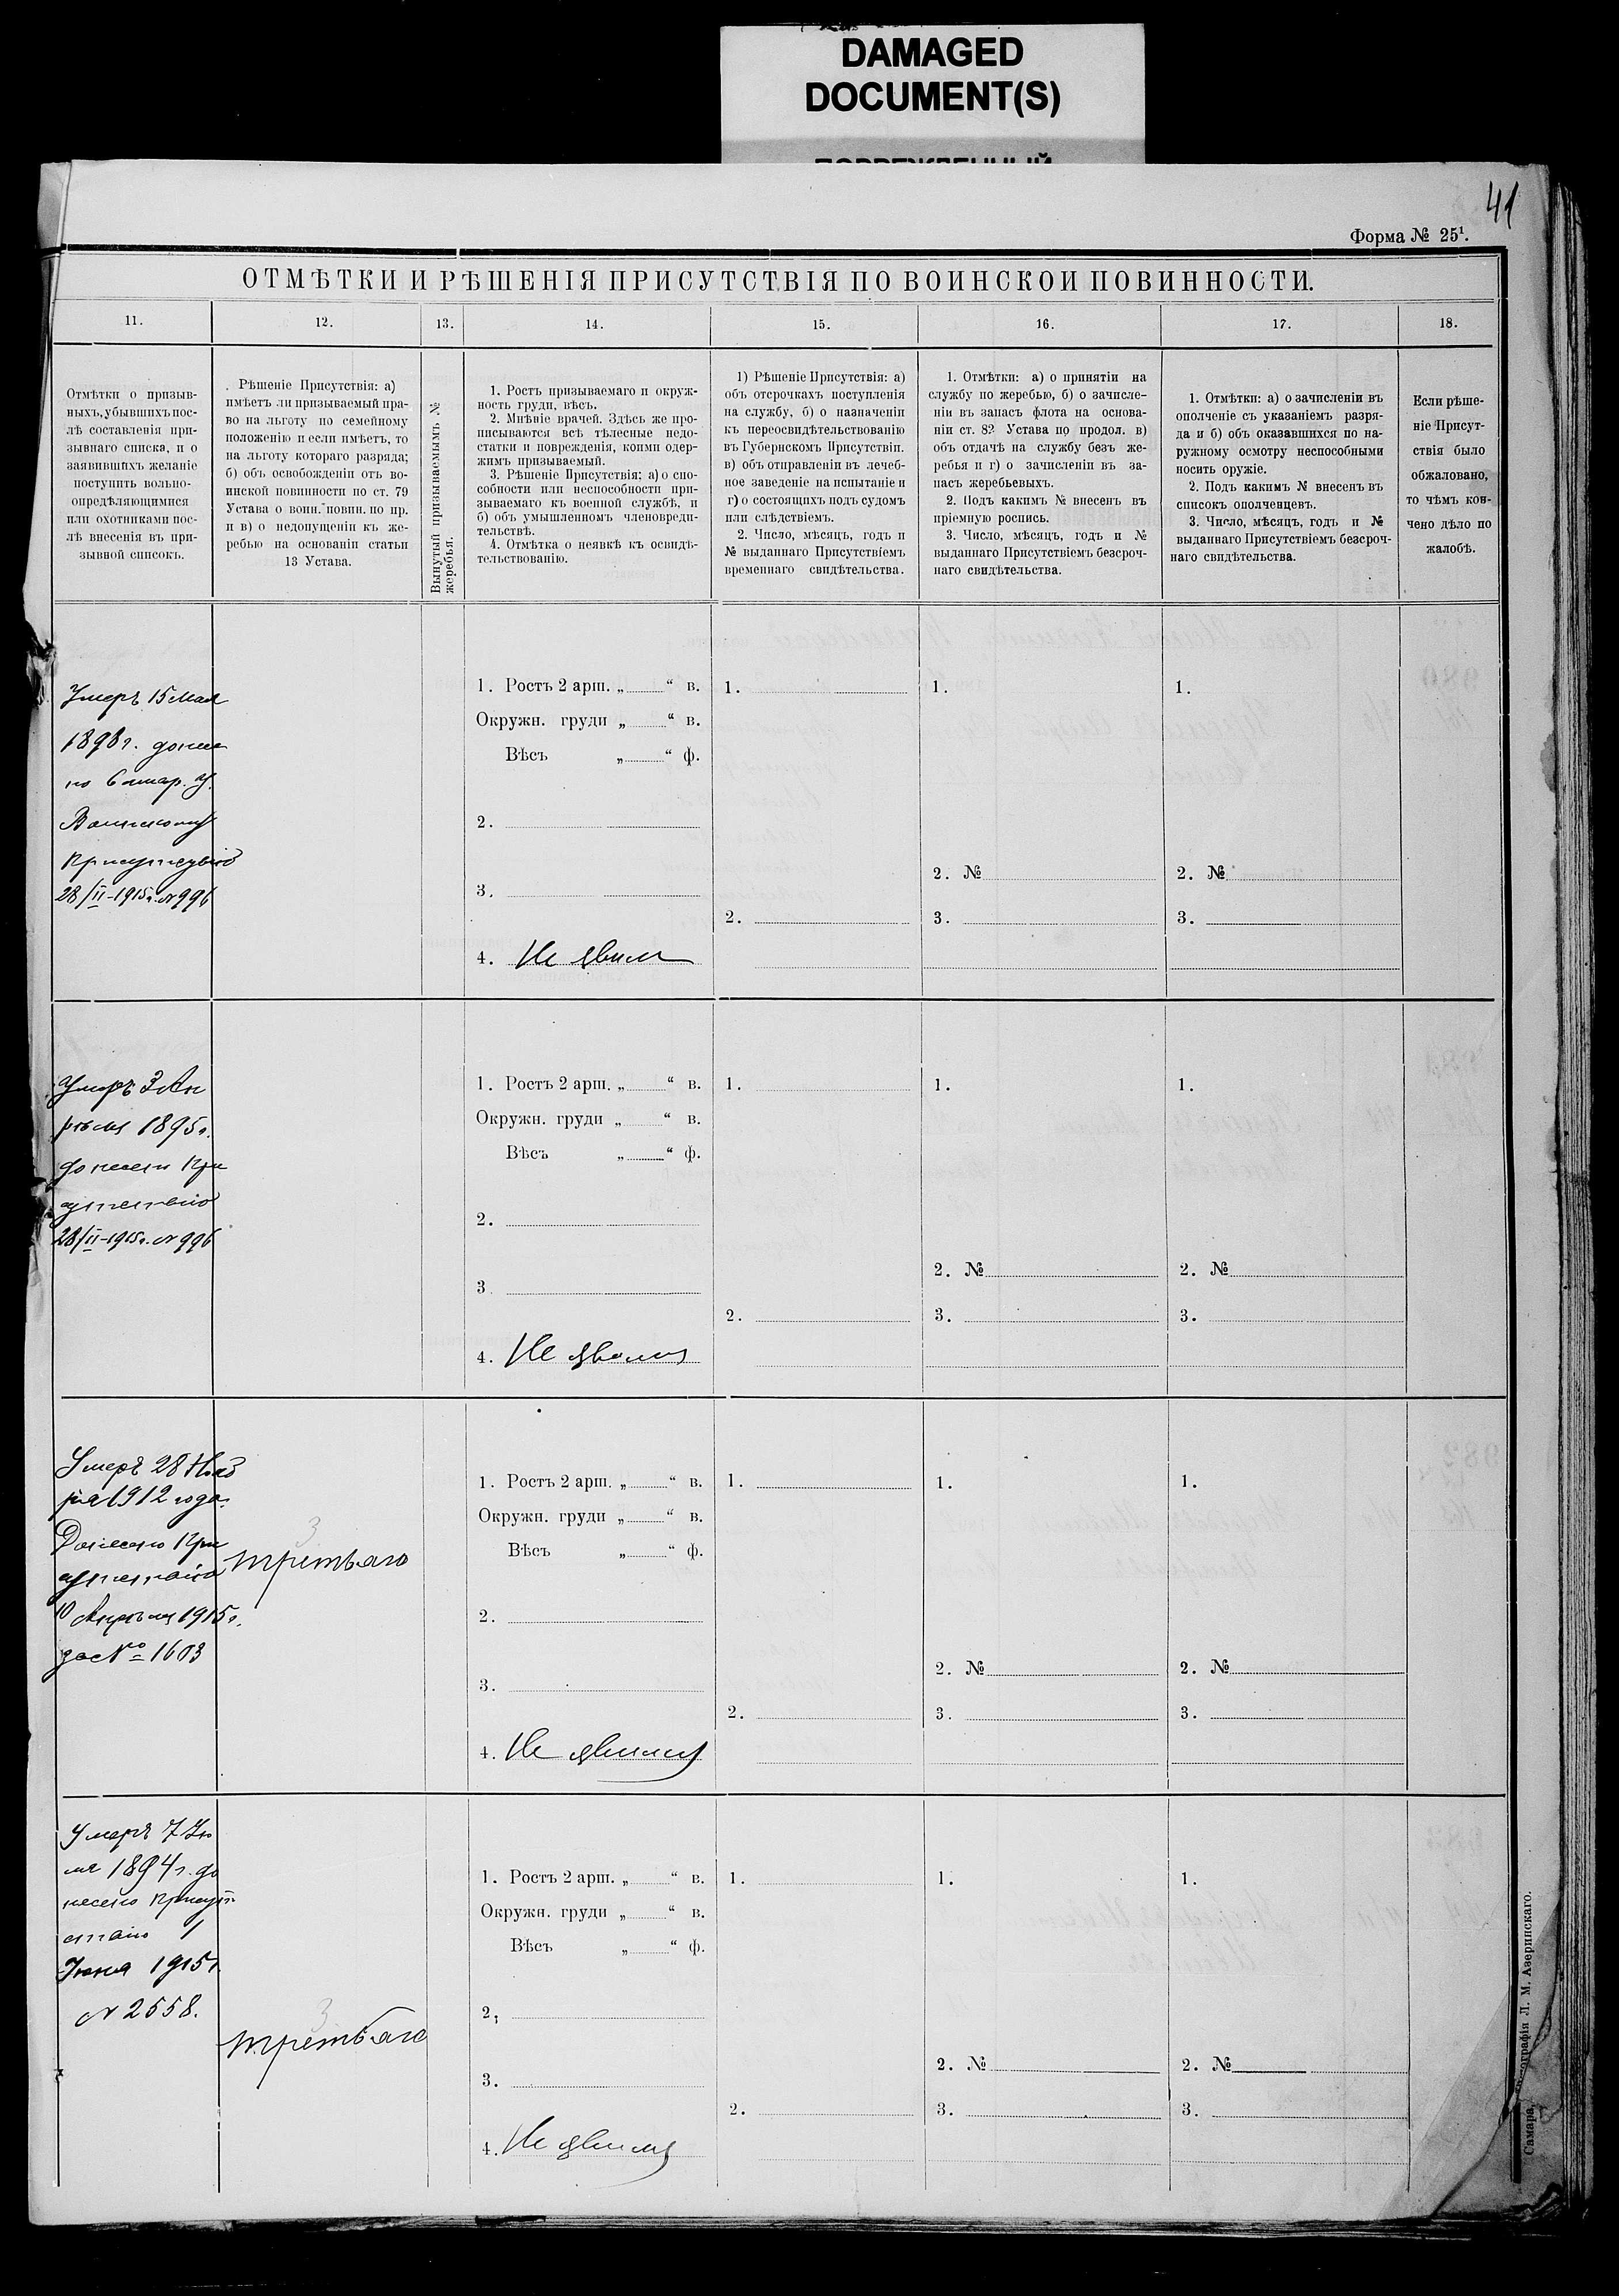 DAMAGED
DOCUMENT(S)
41
Форма № 25¹.
ОТМѢТКИ И РѢШЕНІЯ ПРИСУТСТВІЯ ПО ВОИНСКОИ ПОВИННОСТИ.
11. 12. 13. 14. 15. 16. 17. 18.
Отмѣтки о призыв-
ныхъ, убывшихъ пос-
лѣ составленія при-
зывнаго списка, и о
заявившихъ желаніе
поступить вольно-
опредѣляющимися
или охотниками пос-
лѣ внесенія въ при-
зывной списокъ.
Рѣшеніе Присутствія: а)
имѣетъ ли призываемый пра-
во на льготу по семейному
положенію и если имѣетъ, то
на льготу котораго разряда;
б) объ освобожденіи отъ во-
инской повинности по ст. 79
Устава о воин. повин. по пр.
и в) о недопущеніи къ же-
ребью на основаніи статьи
13 Устава.
Вынутый призываемымъ №
жеребья.
1. Ростъ призываемаго и окруж-
ность груди, вѣсъ.
2. Мнѣніе врачей. Здѣсь же про-
писываются всѣ тѣлесные недо-
статки и поврежденія, коими одер-
жимъ призываемый.
3. Рѣшеніе Присутствія; а) о спо-
собности или неспособности при-
зываемаго къ военной службѣ, и
б) объ умышленномъ членовреди-
тельствѣ.
4. Отмѣтка о неявкѣ къ освидѣ-
тельствованію.
1) Рѣшеніе Присутствія: а)
объ отсрочкахъ поступленія
на службу, б) о назначеніи
къ переосвидѣтельствованію
въ Губернскомъ Присутствіи.
в) объ отправленіи въ лечеб-
ное заведеніе на испытаніе и
г) о состоящихъ подъ судомъ
или слѣдствіемъ.
2. Число, мѣсяцъ, годъ и
№ выданнаго Присутствіемъ
временнаго свидѣтельства.
1. Отмѣтки: а) о принятіи на
службу по жеребью, б) о зачисле-
ніи въ запасъ флота на основа-
ніи ст. 82 Устава по продол. в)
объ отдачѣ на службу безъ же-
ребья и г) о зачисленіи въ за-
пасъ жеребьевыхъ.
2. Подъ какимъ № внесенъ въ
пріемную роспись.
3. Число, мѣсяцъ, годъ и №
выданнаго Присутствіемъ безсроч-
наго свидѣтельства.
1. Отмѣтки: а) о зачисленіи въ
ополченіе съ указаніемъ разря-
да и б) объ оказавшихся по на-
ружному осмотру неспособными
носить оружіе.
2. Подъ какимъ № внесенъ въ
списокъ ополченцевъ.
3. Число, мѣсяцъ, годъ и №
выданнаго Присутствіемъ безсроч-
наго свидѣтельства.
Если рѣше-
ніе Присут-
ствія было
обжаловано,
то чѣмъ кон-
чено дѣло по
жалобѣ.
Умеръ 15 Мая
1898 г. донесе
но Самар. У.
Воинскому
Присутствію
28/II-1915 г. № 996
1. Ростъ 2 арш. „ “ в.
Окружн. груди „ “ в.
Вѣсъ „ “ ф.
2.
3.
4. Не явил
1.
2.
1.
2. №
3.
1.
2. №
3.
Умеръ 3 Ап
рѣля 1895 г.
донесен При
сутствію
28/II-1915 г. № 996
1. Ростъ 2 арш. „ “ в.
Окружн. груди „ “ в.
Вѣсъ „ “ ф.
2.
3.
4. Не явился
1.
2.
1.
2. №
3.
1.
2. №
3.
Умеръ 28 Нояб
ря 1912 года.
Донесено При
сутствію
10 Апрѣля 1915 г.
за № 1603
3
третьяго
1. Ростъ 2 арш. „ “ в.
Окружн. груди „ “ в.
Вѣсъ „ “ ф.
2.
3.
4. Не явился
1.
2.
1.
2. №
3.
1.
2. №
3.
Умеръ 7 Iю
ля 1894 г. до
несено Присут
ствію 1
Iюня 1915 г.
№ 2558.
3
третьяго
1. Ростъ 2 арш. „ “ в.
Окружн. груди „ “ в.
Вѣсъ „ “ ф.
2.
3.
4. Не явился
1.
2.
1.
2. №
3.
1.
2. №
3.
Самара, Типографія Л. М. Азеринскаго.